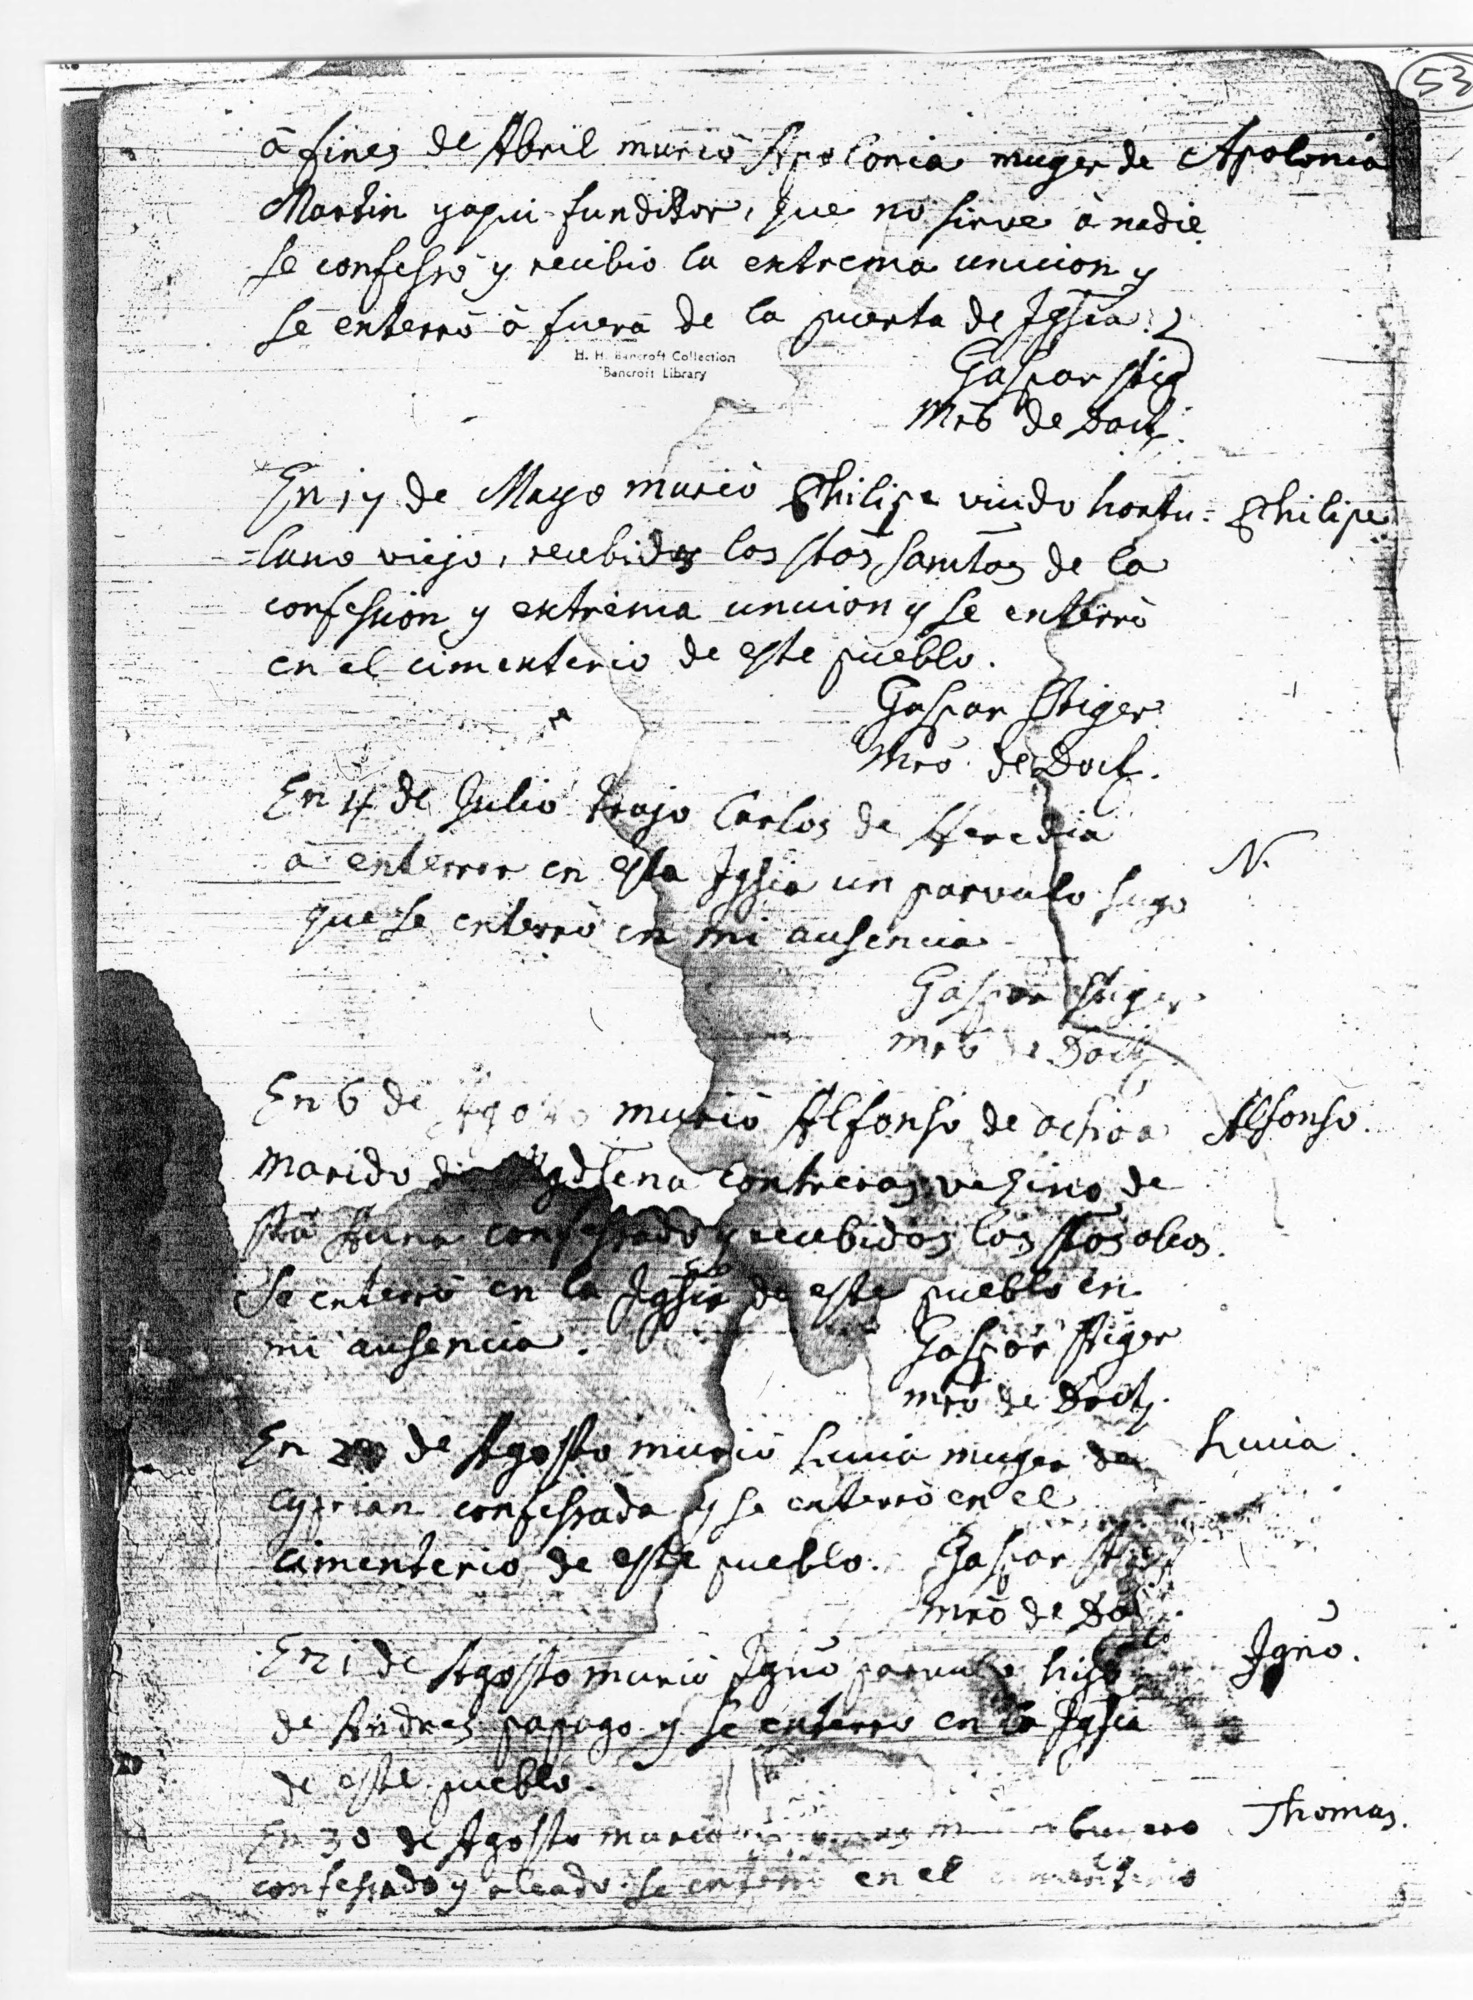 53
à fines de Abril murió Apolonia muger de Apolonia
Martin yaqui funditor, que no sirve à nadie
se confessò y recibio la extrema uncion y
se enterrò à fuera de la puerta de Iglia.
H. H. Bancroft Collection
Bancroft Library
Gaspar Stig
Mrò de Doct.
En 17 de Mayo muriò Philipe viudo hortu= Philipe
=lano viejo, recebidos los stos sacmtos de la
confession y extrema uncion y se enterrò
en el cimenterio de este pueblo.
Gaspar Stiger
Mrò de Doct.
En 4 de Julio trajo Carlos de Heredia
à enterrar en esta Iglia un parvulo suyo N.
que se enterrò en mi ausencia
Gaspar Stiger
mrò de Doct
En 6 de Agosto muriò Alfonso de ochoa Alfonso.
marido de Magdlena Contreras vezino de
Sta Anna confessado y recebidos los stos oleos.
Se enterrò en la Iglia de este pueblo en
mi ausencia.
Gaspar Stiger
mrò de Doct.
En de Agosto muriò Lucia muger de Lucia.
Cyprian confessada y se enterrò en el
cimenterio de este pueblo. Gaspar Stiger
mrò de Do
En de Agosto muriò Ignò parvulo hijo Ignò.
de Andres papago y se enterrò en la Iglia
de este pueblo.
En 30 de Agosto muriò Thomas.
confessado y oleado se enterrò en el cimenterio